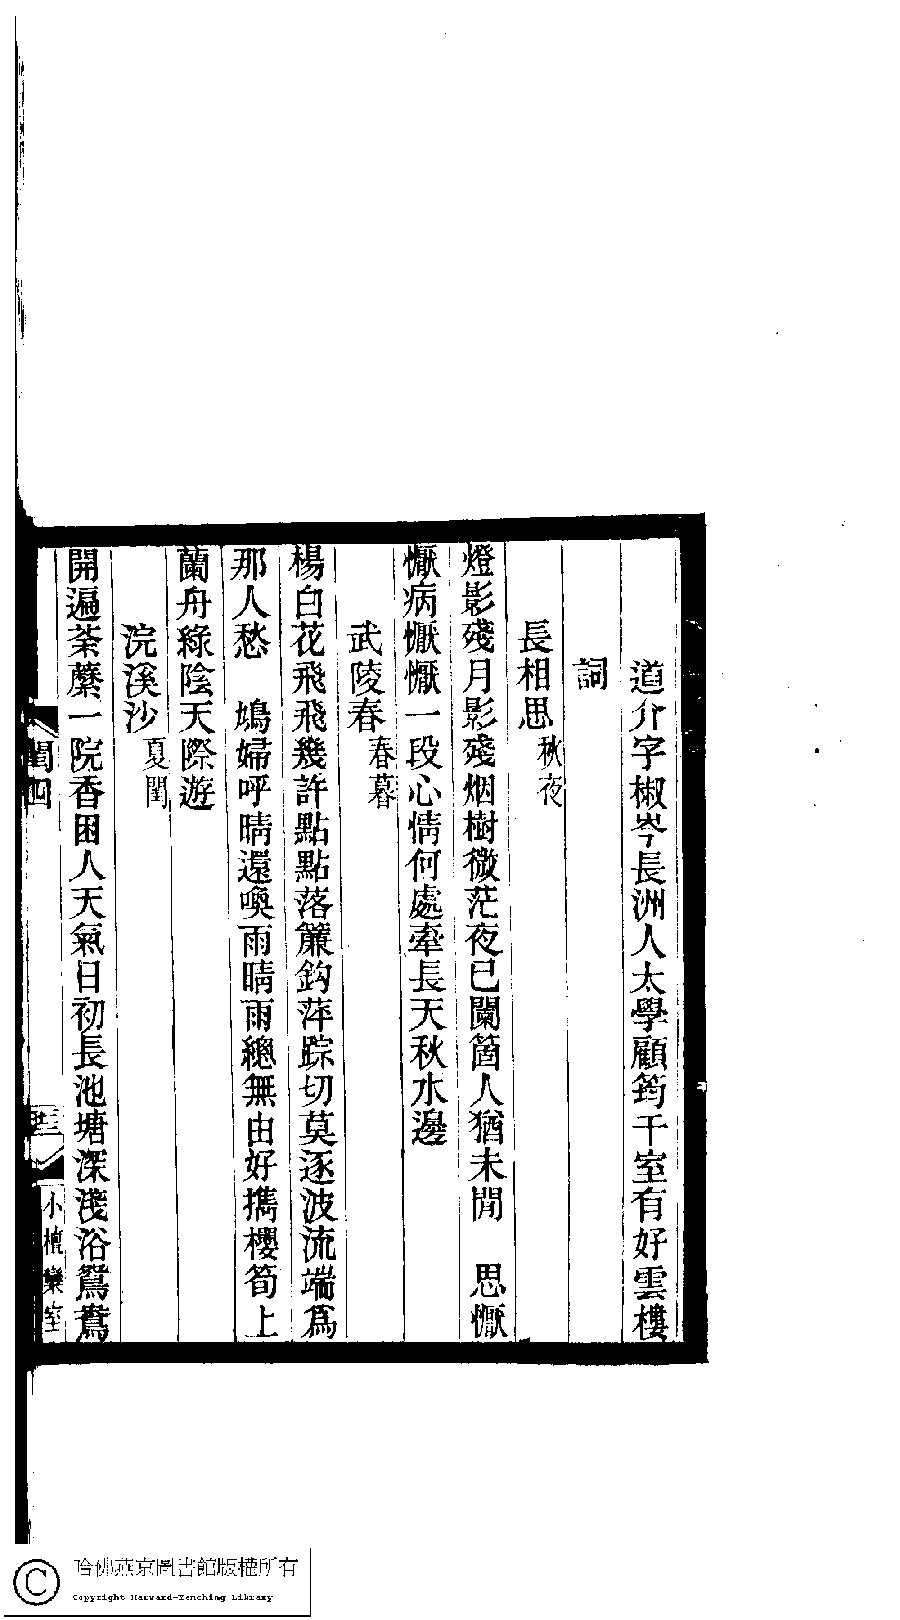 道介字椒岑長洲人太學顧筠干室有好雲樓
詞
長相思秋夜
燈影殘月影殘烟樹微茫夜已闌箇人猶未閒　思懨
懨病懨懨一段心情何處牽長天秋水邊
武陵春春暮
楊白花飛飛幾許點點落簾鈎萍踪切莫逐波流端爲
那人愁　鳩婦呼晴還喚雨晴雨總無由好攜櫻筍上
蘭舟綠陰天際遊
浣溪沙夏閨
開遍荼蘼一院香困人天氣日初長池塘深淺浴鴛鴦
閏四
小檀欒室
哈佛燕京圖書館版權所有
Copyright Harvard-Yenching Library